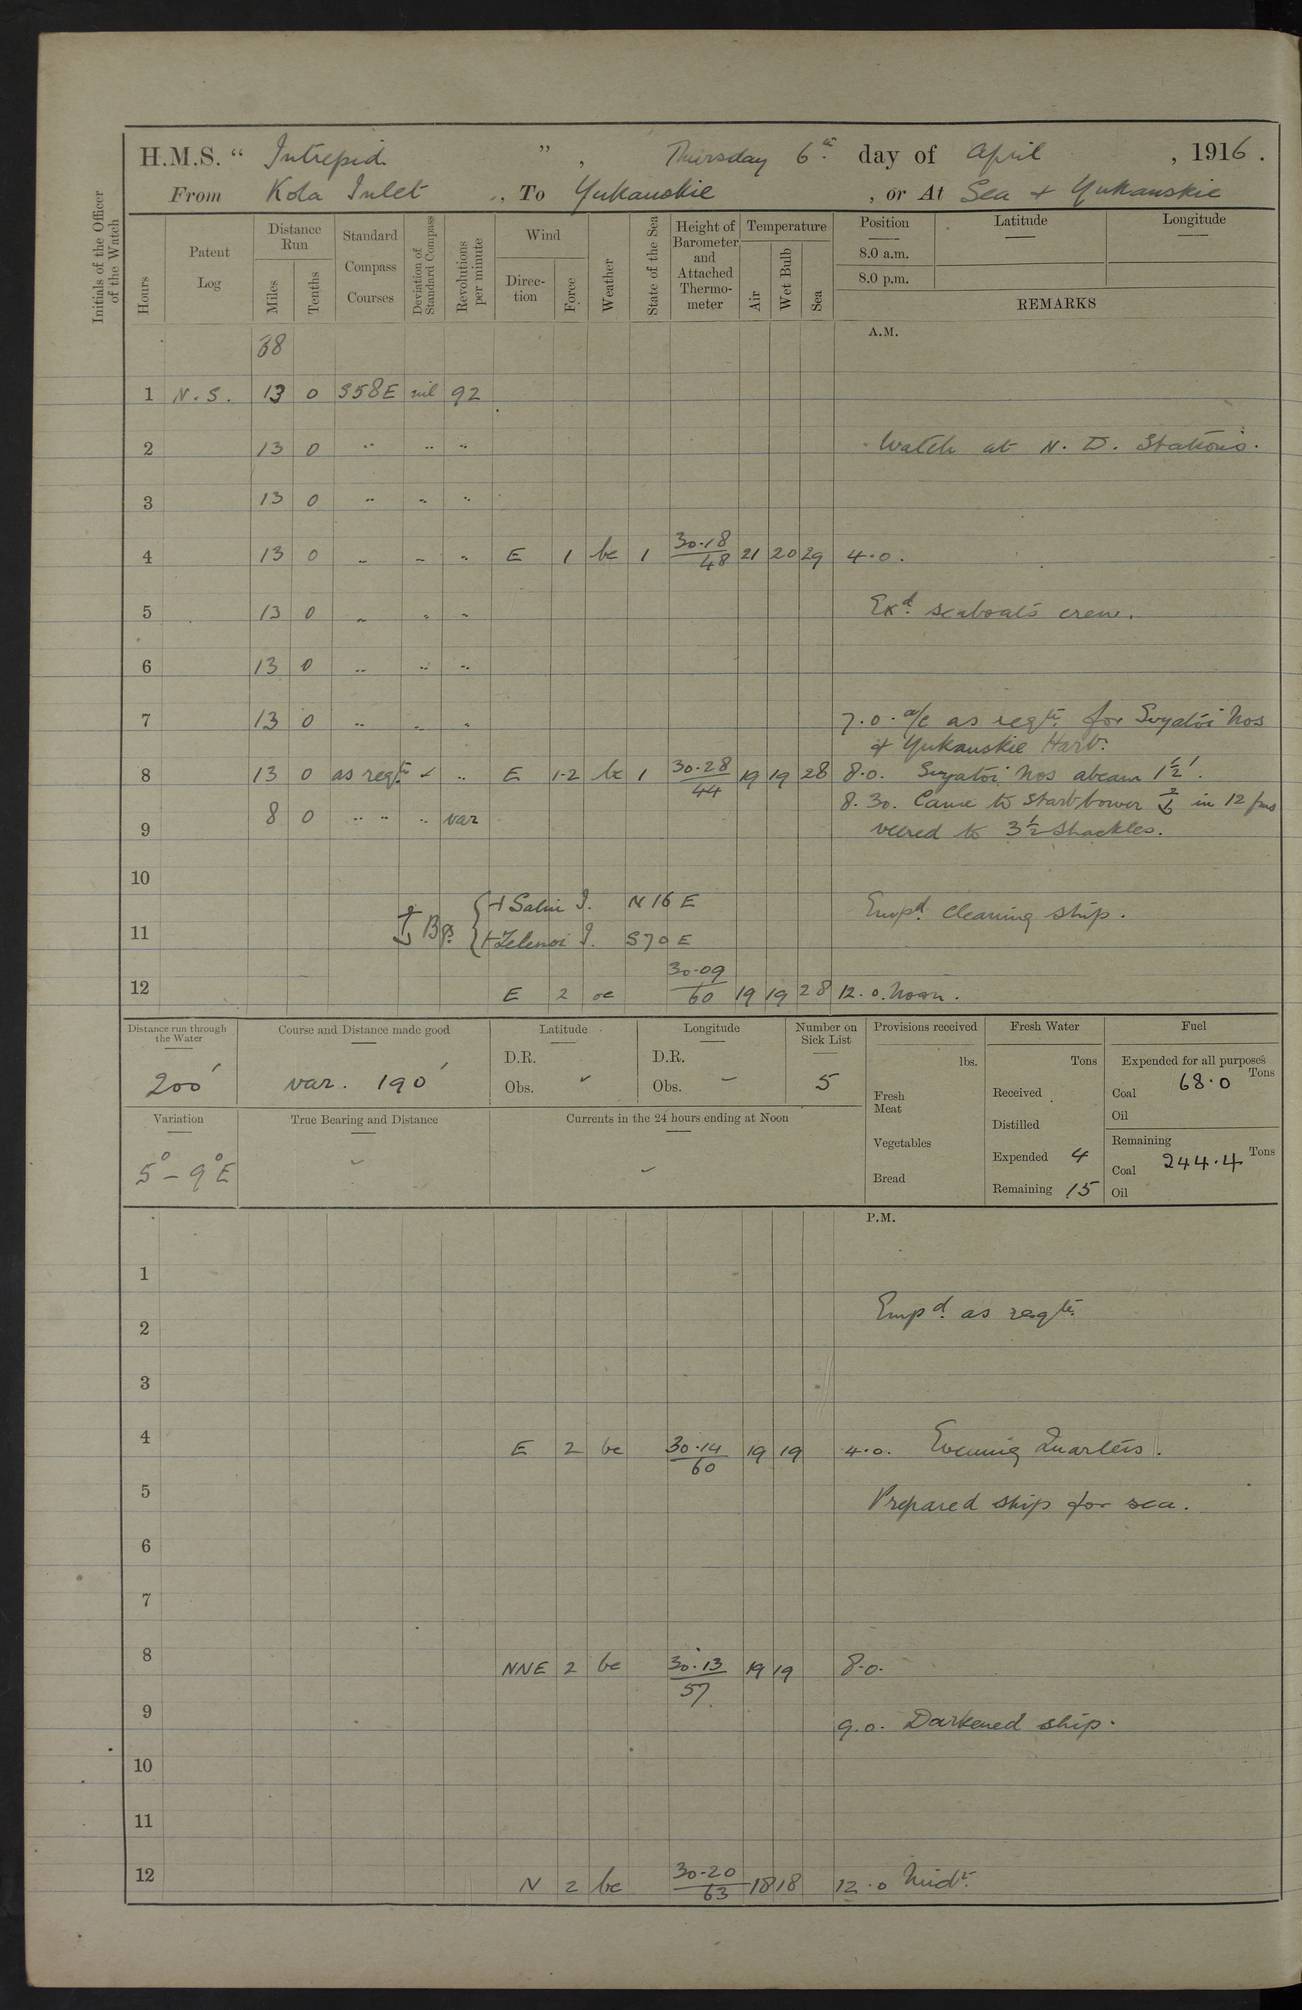 H.M.S. “ Intrepid ” , Thursday 6th day of April , 1916 .
From Kola Inlet , To Yukanskie , or At Sea & Yukanskie
Initials of the Officer of the Watch
Hours
Patent Log
Distance Run
Miles
Tenths
Standard Compass Courses
Deviation of Standard Compass
Revolutions per minute
Wind
Direction
Force
Weather
State of the Sea
Height of Barometer and Attached Thermometer
Temperature
Air
Wet Bulb
Sea
Position
8.0 a.m.
8.0 p.m.
Latitude
Longitude
REMARKS
A.M.
38
1 N.S. 13 0 S58E nil 92
2 13 0 " " " Watch at N. D. Stations.
3 13 0 " " "
4 13 0 " " " E 1 bc 1 30.18/48 21 20 29 4.0.
5 13 0 " " " Exd. seaboats crew.
6 13 0 " " "
7 13 0 " " " 7.0. a/c as reqte. for Svyatoi Nos
& Yukanskie Harbr.
8 13 0 as reqte. ✓ " E 1-2 bc 1 30.28/44 19 19 28 8.0. Svyatoi Nos abeam 1½'.
8.30. Came to Starb bower ⚓ in 12 fms
9 8 0 " " " var veered to 3½ shackles.
10
⚓ Bgs. { + Salni I. N 16 E Empd. cleaning ship.
11 + Zelenoi I. S 70 E
12 E 2 oc 30.09/60 19 19 28 12.0. Noon.
Distance run through the Water
200'
Course and Distance made good
var. 190'
Latitude
D.R.
Obs. ✓
Longitude
D.R.
Obs. –
Number on Sick List
5
Provisions received
lbs.
Fresh Meat
Vegetables
Bread
Fresh Water
Tons
Received .
Distilled
Expended 4
Remaining 15
Fuel
Expended for all purposes
Tons
Coal 68.0
Oil
Remaining
Tons
Coal 244.4
Oil
Variation
5° – 9°E
True Bearing and Distance
Currents in the 24 hours ending at Noon
P.M.
1
2 Empd. as reqte.
3
4 E 2 bc 30.14/60 19 19 4.0. Evening Quarters.
5 Prepared ship for sea.
6
7
8 NNE 2 bc 30.13/57 19 19 8.0.
9 9.0. Darkened ship.
10
11
12 N 2 bc 30.20/63 18 18 12.0 Midt.